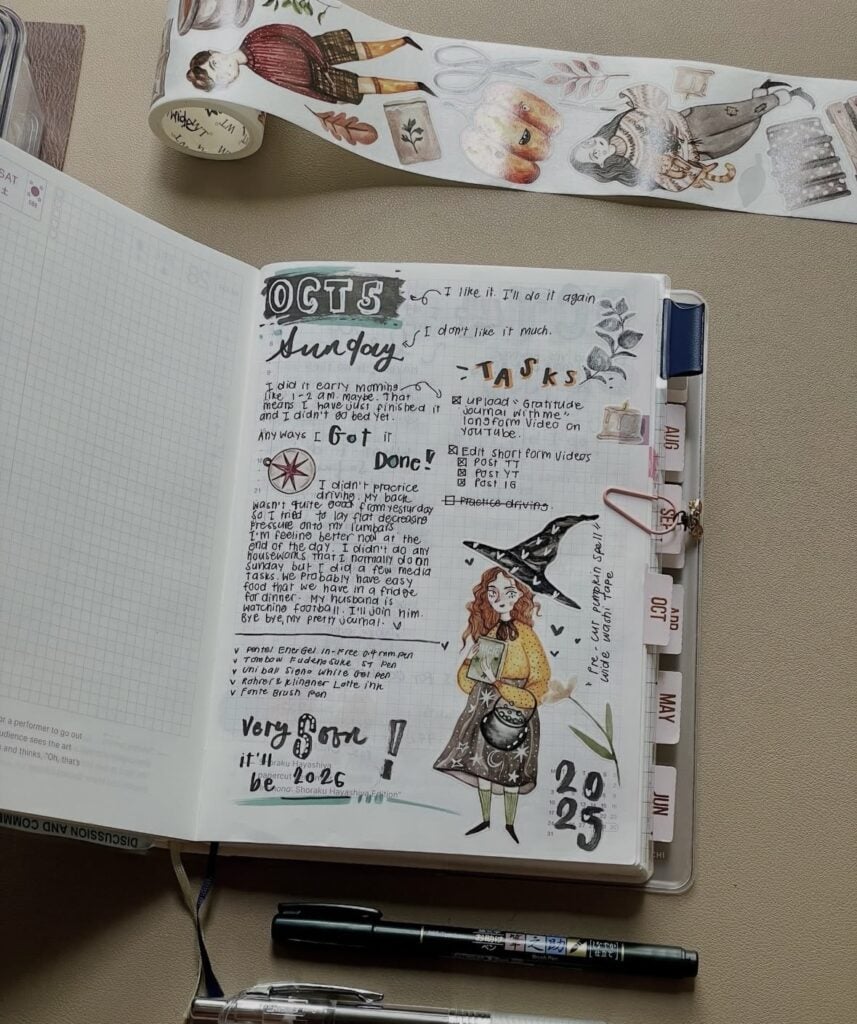 SAT
土
OCT 5
I like it. I'll do it again
Sunday
I don't like it much.
I did it early morning
like 1-2 a.m. maybe. That
means I have just finished it
and I didn't go bed yet.
Any ways I Got it
Done!
I didn't practice
driving. My back
wasn't quite good from yesterday
so I tried to lay flat decreasing
pressure onto my lumbars
I'm feeling better now at the
end of the day. I didn't do any
houseworks that I normally do on
Sunday but I did a few media
tasks. We probably have easy
food that we have in a fridge
for dinner. My husband is
watching football. I'll join him.
Bye bye, my pretty journal.
TASKS
Upload "Gratitude
Journal with me"
longform video on
YouTube.
Edit short form videos
Post TT
Post YT
Post IG
Practice driving.
"Pre-cut pumpkin spell"
wide washi tape
Pentel EnerGel in-Free 0.4 mm pen
Tombow Fudenosuke ST pen
Uniball Signo White Gel pen
Rohrer & Klingner Lotte ink
Fonte Brush pen
Very Soon
it'll
be 2026
!
Shoraku Hayashiya
papercut
Shoraku Hayashiya Edition"
2025
AUG
SEP
OCT
APR
MAY
JUN
or a performer to go out
udience sees the art
and thinks, "Oh, that's
DISCUSSION AND COMM
筆之助
Brush Pen